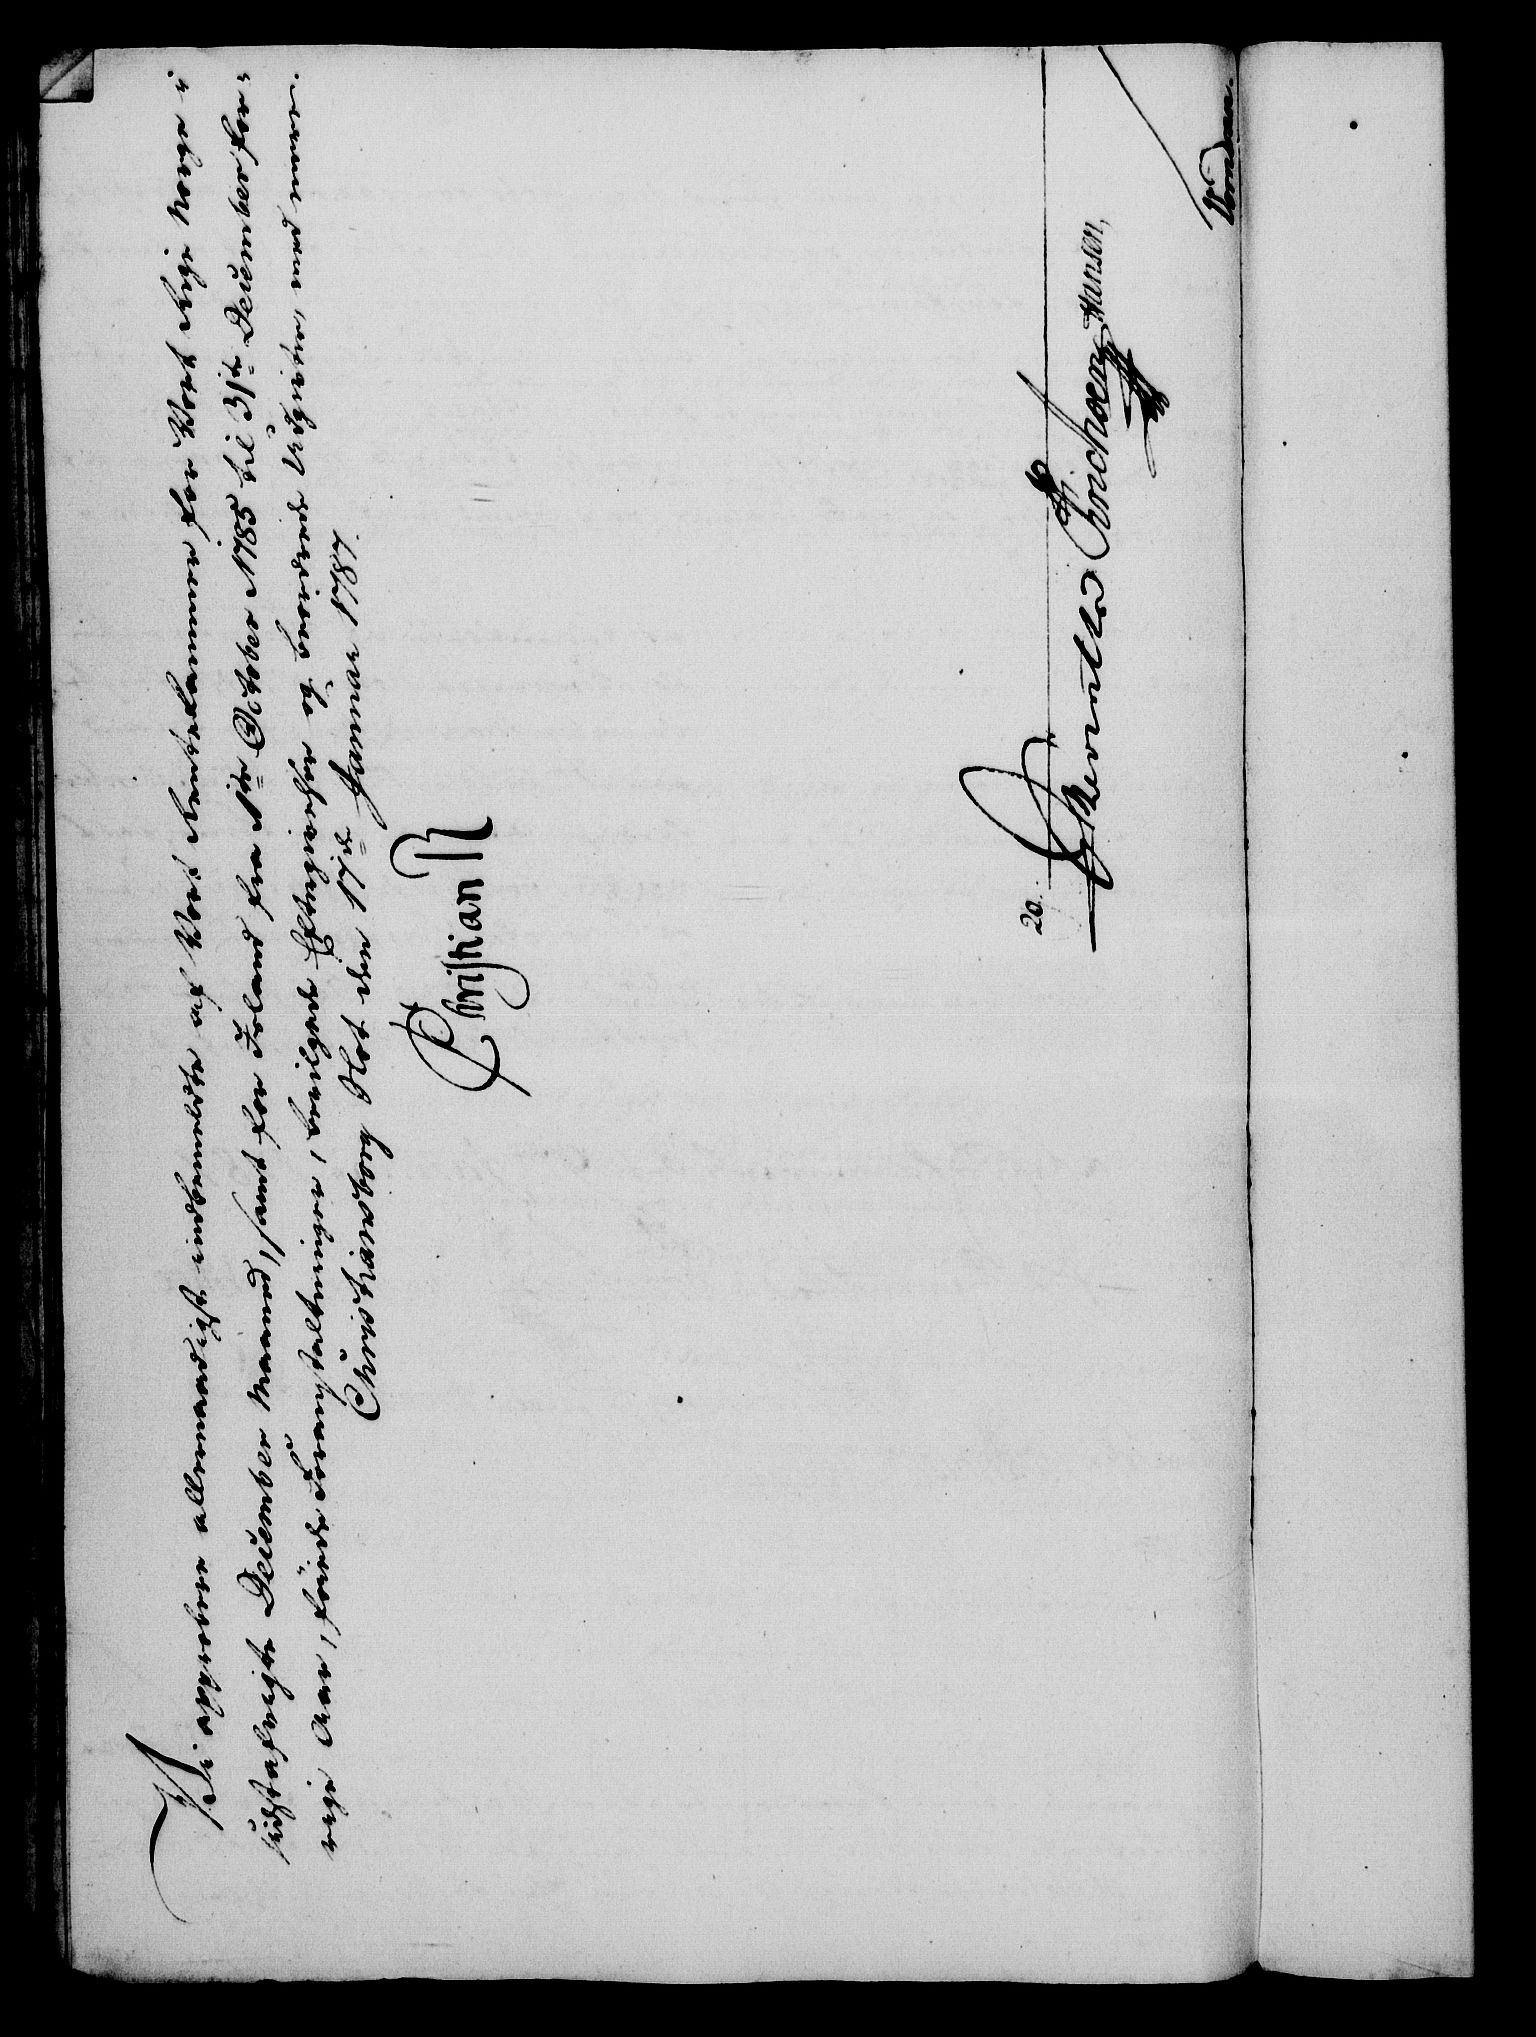 Vi approbere allernaadigst indbemeldte af Vort Rentekammer for Vort Rige Norge i
sidstafvigte December Maaned, samt for Island fra 1te October 1785 til 31te December for-
rige Aar, føiede Foranstaltninger, bevilgede Eftergivelser og bevirkede Udgivter, med mere.
Christiansborg Slot den 17de Januar 1787.
Christian R
20.
Reventlow Erichsen
Hansen,